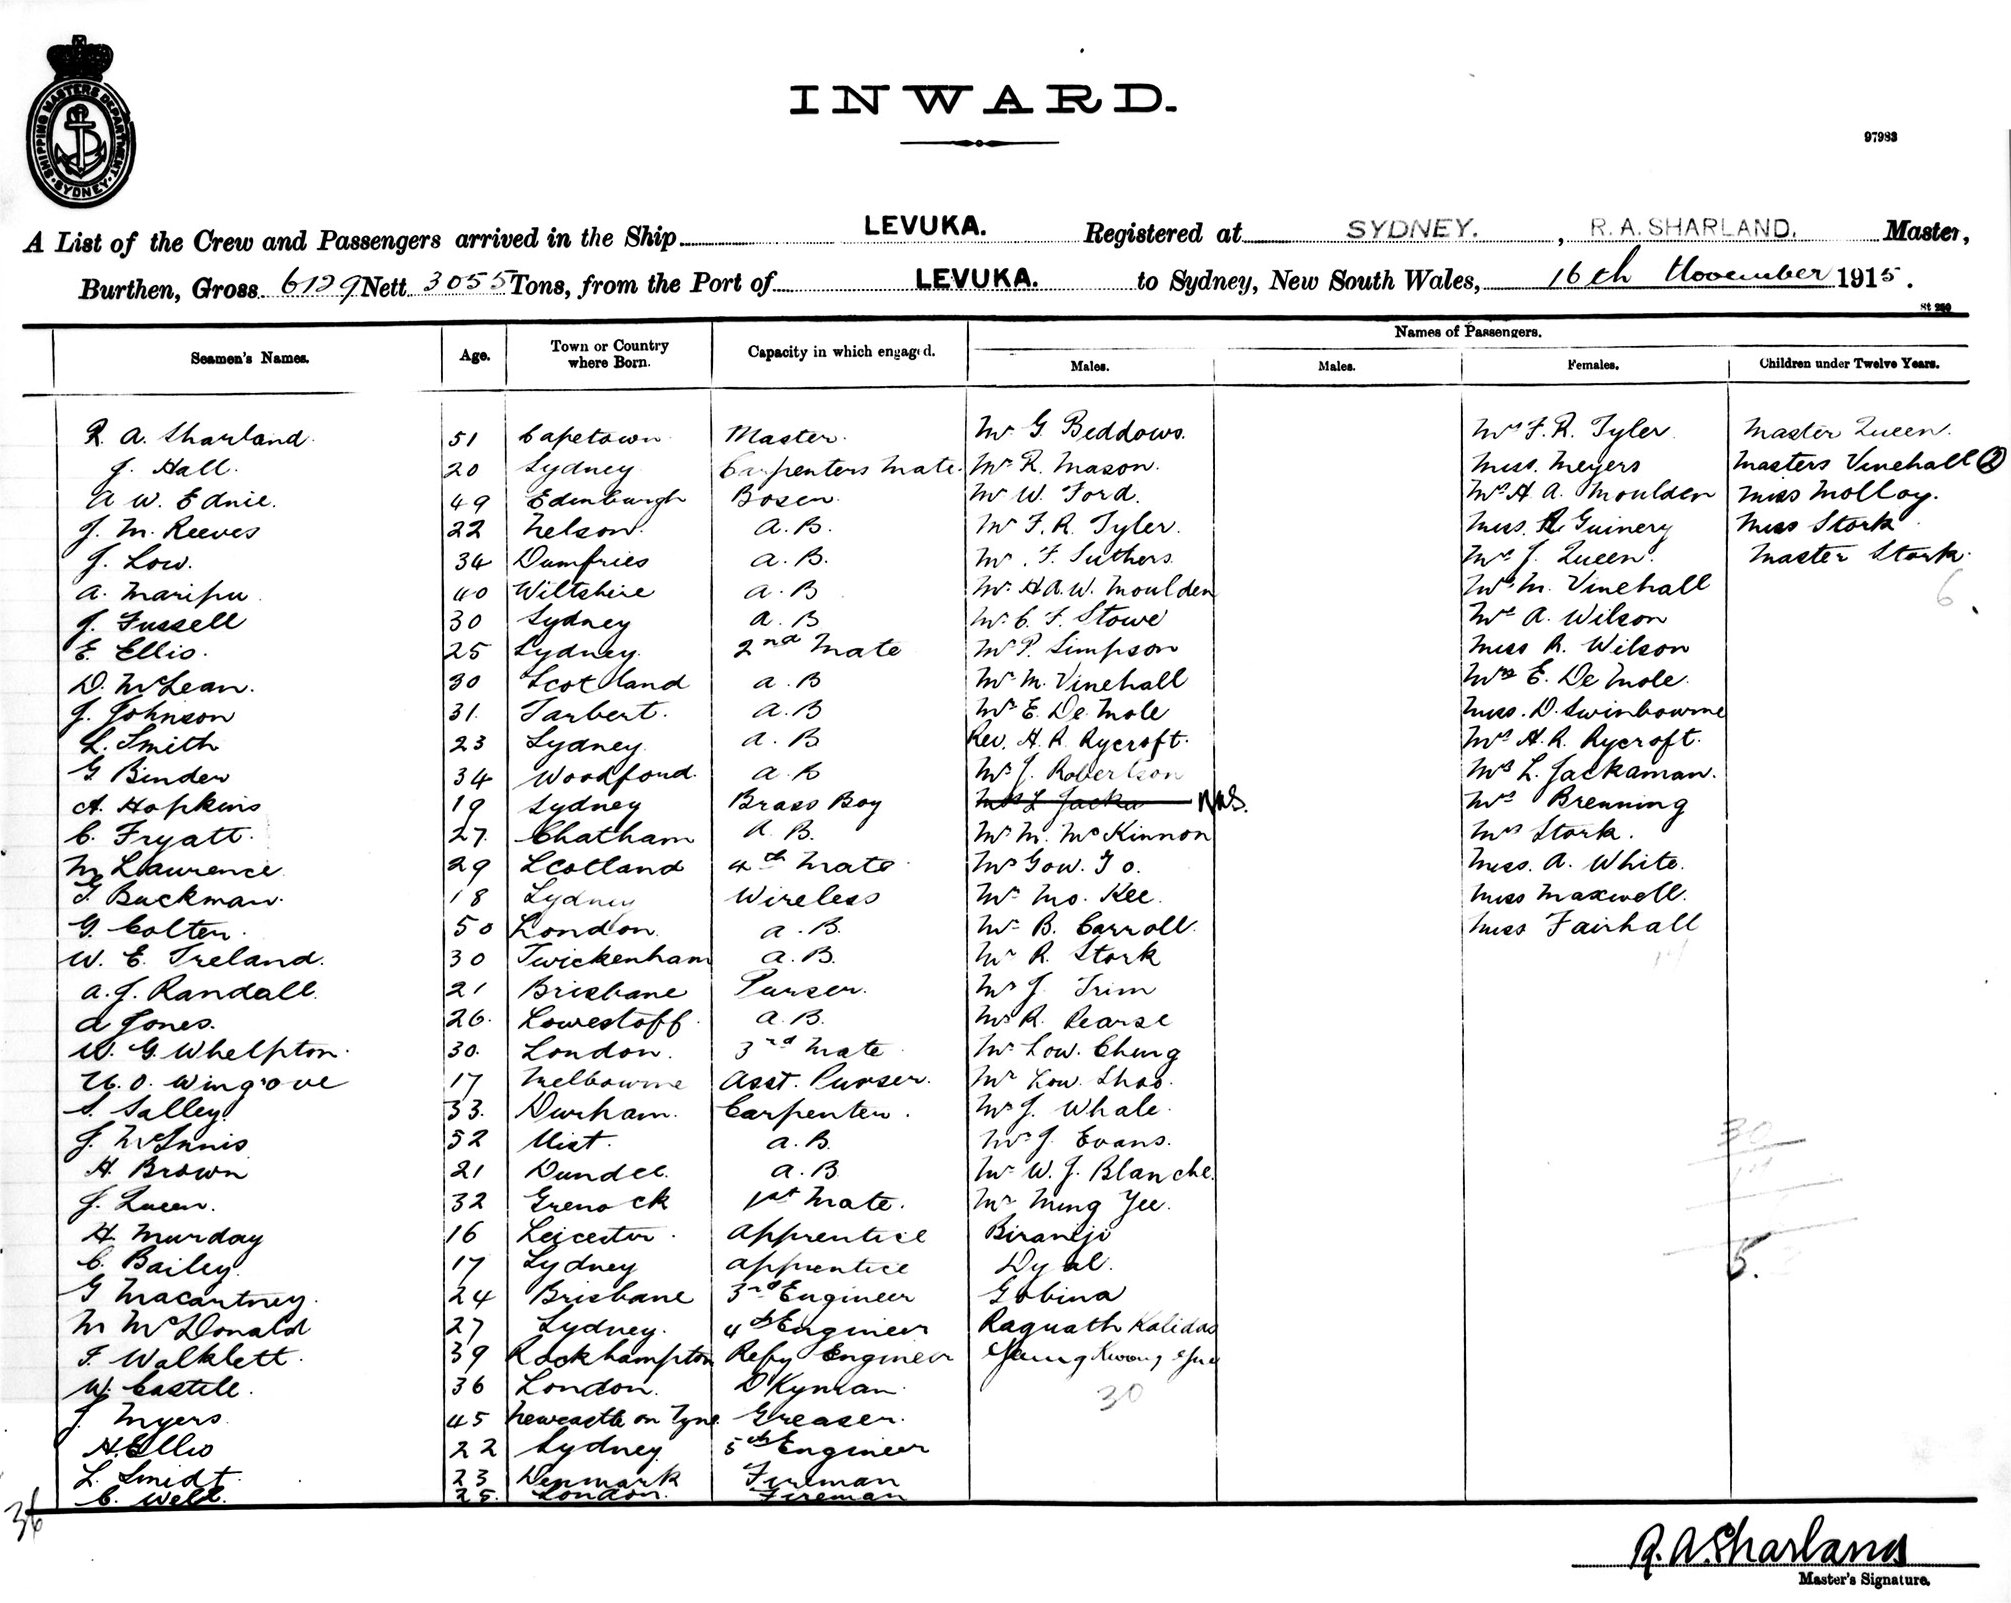 SHIPPING MASTERS DEPARTMENT
SYDNEY
INWARD.
97983
A List of the Crew and Passengers arrived in the Ship LEVUKA. Registered at SYDNEY. , R. A. SHARLAND. Master,
Burthen, Gross 6129 Nett 3055 Tons, from the Port of LEVUKA. to Sydney, New South Wales, 16th November 1915.
St 250
Names of Passengers.
Seamen's Names. Age. Town or Country where Born. Capacity in which engaged. Males. Males. Females. Children under Twelve Years.
R. A. Sharland. 51 Capetown Master. Mr G. Beddows. Mrs F. R. Tyler Master Queen.
J. Hall. 20 Sydney Carpenters Mate. Mr R. Mason. Miss. Meyers Masters Vinehall 2
A W. Ednie. 49 Edinburgh Bosen. Mr W. Ford. Mrs H A. Moulden Miss Molloy.
J. M. Reeves 22 Nelson. A. B. Mr F. R. Tyler. Miss. R Guinery Miss Stork
J. Low. 34 Dumfries A. B. Mr. F. Suthers. Mrs J. Queen. Master Stork.
A. Maripu 40 Wiltshire A. B Mr. H A. W. Moulden Mrs M. Vinehall 6.
J. Fussell 30 Sydney A. B Mr. C. F. Stowe Mrs A. Wilson
E. Ellis. 25 Sydney. 2nd Mate Mr P. Simpson Miss R. Wilson
D. McLean. 30 Scotland A. B Mr M. Vinehall Mrs E. De Mole.
J. Johnson 31. Tarbert. A. B Mr E. De Mole Miss. D. Swinbourne
L. Smith 23 Sydney A. B Rev. H. R. Rycroft. Mrs H. R. Rycroft.
G. Binder 34 Woodford. A. B Mr J. Robertson Mrs L. Jackaman.
A. Hopkins 19 Sydney Brass Boy Mrs L Jacka Mrs Brenning
C. Fryatt. 27. Chatham A. B. Mr M. McKinnon Mrs Stork.
M Lawrence 29 Scotland 4th Mate Mr Gow. Go. Miss. A. White.
G. Buckman. 18 Sydney Wireless Mr Mo. Kee. Miss Maxwell.
G. Colten. 50 London. A. B. Mr B. Carroll. Miss Fairhall
W. E. Ireland. 30 Twickenham A. B. Mr R. Stork
A. J. Randall. 21 Brisbane Purser. Mr J. Trim
A Jones. 26. Lowestoff. A. B. Mr R. Pearse
W. G. Whelpton. 30. London. 3rd Mate Mr Low. Cheng
H. O. Wingrove 17 Melbourne Asst. Purser. Mr Low. Shoo.
S. Salley. 33. Durham. Carpenter. Mr J. Whale.
J. McInnis 52 Uist. A. B. Mr J. Evans.
H. Brown 21 Dundee. A. B Mr W. J. Blanche.
J. Queen. 32 Grenock 1st Mate. Mr Ming Yee.
H. Murday 16 Leicester. Apprentice Biranji
C. Bailey. 17 Sydney Apprentice Dyal.
G Macartney. 24 Brisbane 3rd Engineer Gobina
M McDonald 27 Sydney. 4th Engineer Raguath Kalidas
F. Walklett. 39 Rockhampton Refy Engineer Kwong
W. Castle. 36 London. D'Kyman. 30
J. Myers 45 Newcastle on Tyne Greaser.
H. Ellis 22 Sydney. 5th Engineer
L. Smidt. 23 Denmark Fireman
C. Well. 25. London. Fireman
36
R. A. Sharland
Master's Signature.